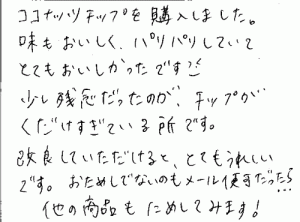 ココナッツチップを購入しました。
味もおいしく、パリパリしていて
とてもおいしかったです
少し残念だったのが、チップが
くだけすぎている所です。
改良していただけると、とてもうれしい
です。おためしでないのもメール便可だったら…
他の商品もためしてみます!